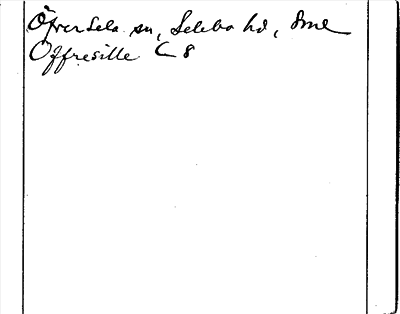 Öfversela sn, Selebo hd, Sml
Offresille C 8